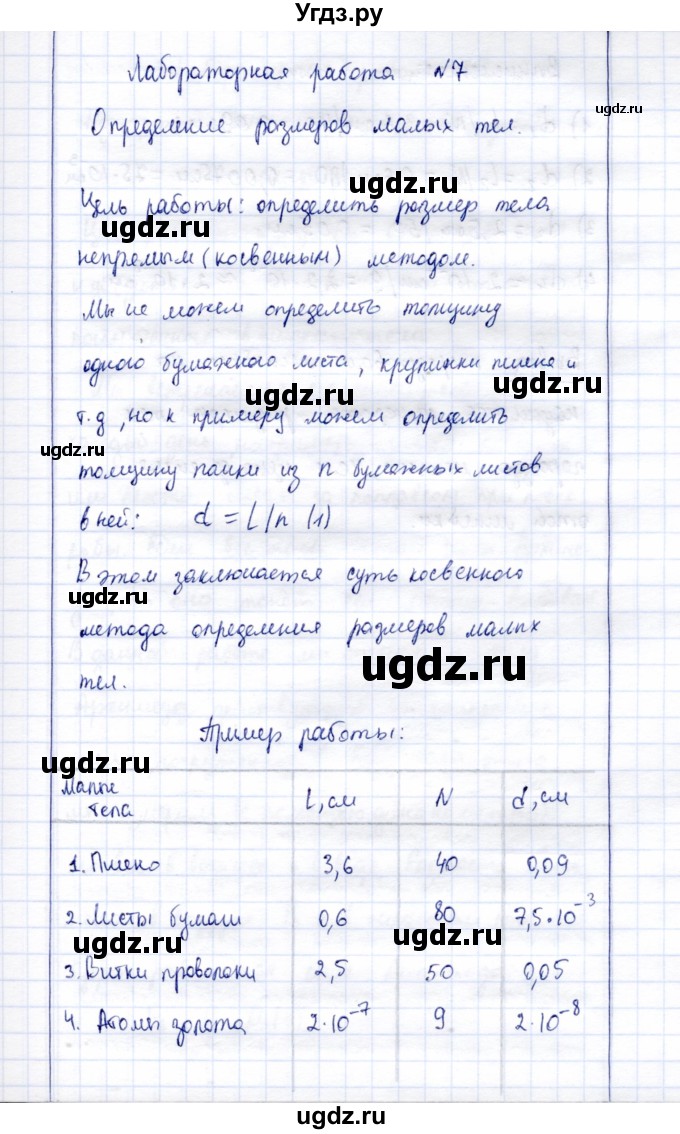 Угдз.ру
Лабораторная работа №7
ugdz.ru
Определение размеров малых тел.
ugdz.ru
Цель работы: определить размер тела
ugdz.ru
непрямым (косвенным) методом.
Мы не можем определить толщину
одного бумажного листа, крупинки пшена и
ugdz.ru
ugdz.ru
т.д, но к примеру можем определить
ugdz.ru
толщину пачки из n бумажных листов
в ней: d = L/n (1)
В этом заключается суть косвенного
ugdz.ru
метода определения размеров малых
ugdz.ru
тел.
Пример работы:
ugdz.ru
Малые тела L, см N d, см
1. Пшено 3,6 40 0,09
2. Листы бумаги 0,6 80 7,5·10⁻³
ugdz.ru
ugdz.ru
3. Витки проволоки 2,5 50 0,05
4. Атомы золота 2·10⁻⁷ 9 2·10⁻⁸
ugdz.ru